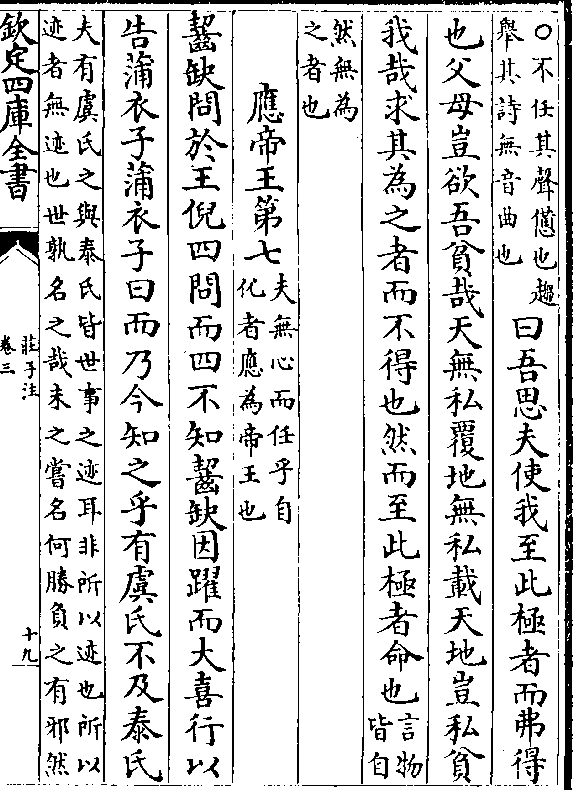 ○不任其聲憊也趨
舉其詩無音曲也
曰吾思夫使我至此極者而弗得
也父母豈欲吾貧哉天無私覆地無私載天地豈私貧
我哉求其為之者而不得也然而至此極者命也
言物
皆自
然無為
之者也
應帝王第七
夫無心而任乎自
化者應為帝王也
齧缺問於王倪四問而四不知齧缺因躍而大喜行以
告蒲衣子蒲衣子曰而乃今知之乎有虞氏不及泰氏
夫有虞氏之與泰氏皆世事之迹耳非所以迹也所以
迹者無迹也世孰名之哉未之嘗名何勝負之有邪然
欽定四庫全書
莊子注
卷三
十九